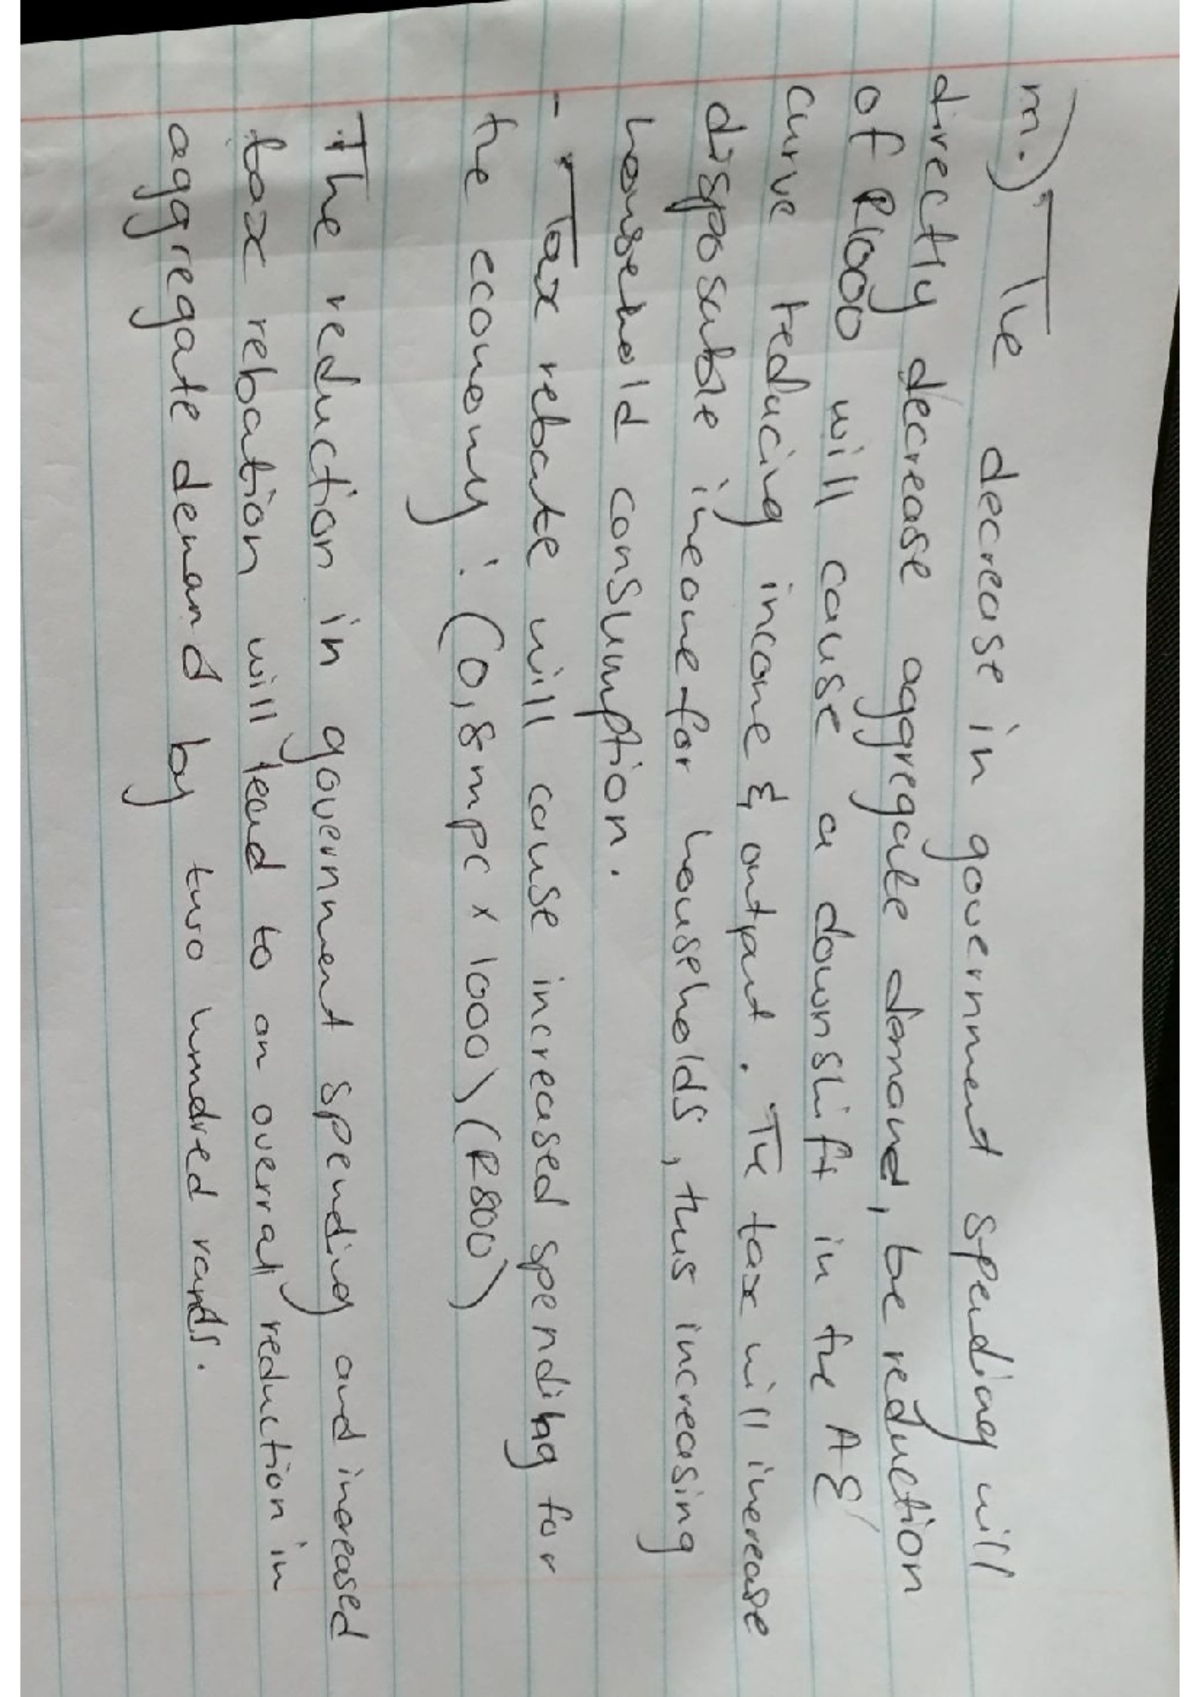 m.) The decrease in government spending will
directly decrease aggregate demand, be reduction
of R1000 will cause a downshift in the AE
curve reducing income & output. The tax will increase
disposable income for households, thus increasing
household consumption.
- Tax rebate will cause increased spending for
the economy : (0,8 mpc x 1000) (R800)
The reduction in government spending and increased
tax rebation will lead to an overall reduction in
aggregate demand by two hundred rands.